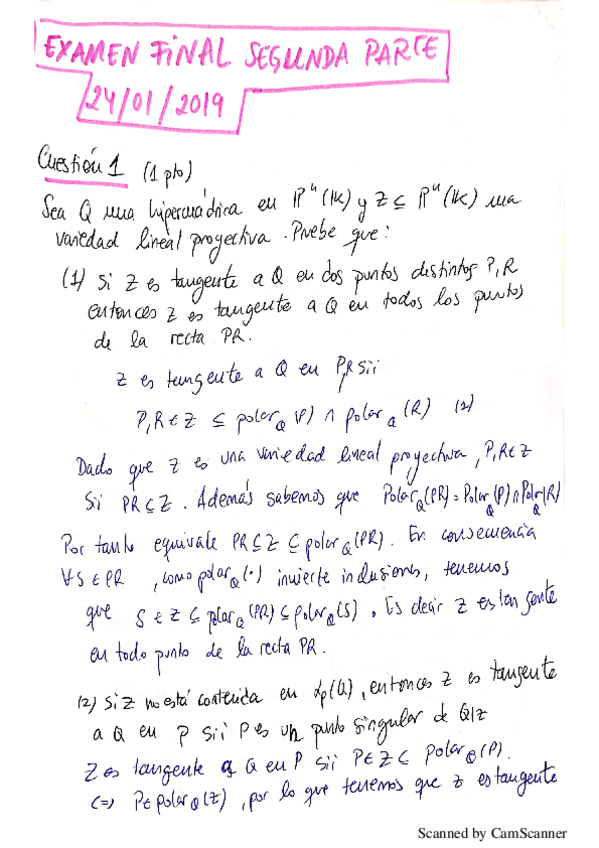 EXAMEN FINAL SEGUNDA PARTE
24/01/2019
Cuestión 1 (1 pto)
Sea Q una hipercuádrica en ℙⁿ(𝕂) y Z ⊆ ℙⁿ(𝕂) una
variedad lineal proyectiva. Pruebe que:
(1) Si Z es tangente a Q en dos puntos distintos P, R
entonces Z es tangente a Q en todos los puntos
de la recta PR.
Z es tangente a Q en P,R sii
P, R ∈ Z ⊆ polar_Q (P) ∩ polar_Q (R) (1)
Dado que Z es una variedad lineal proyectiva, P,R∈Z
Sii PR⊆Z. Además sabemos que Polar_Q(PR) = Polar_Q(P) ∩ Polar_Q(R)
Por tanto equivale PR⊆Z⊆polar_Q(PR). En consecuencia
∀S∈PR, como polar_Q(·) invierte inclusiones, tenemos
que S∈Z⊆polar_Q(PR)⊆polar_Q(S). Es decir Z es tangente
en todo punto de la recta PR.
(2) Si Z no está contenida en (Q), entonces Z es tangente
a Q en P sii P es un punto singular de Q|Z
Z es tangente a Q en P sii P∈Z⊂ polar_Q(P).
(=) P∈polar_Q(Z), por lo que tenemos que Z es tangente
Scanned by CamScanner